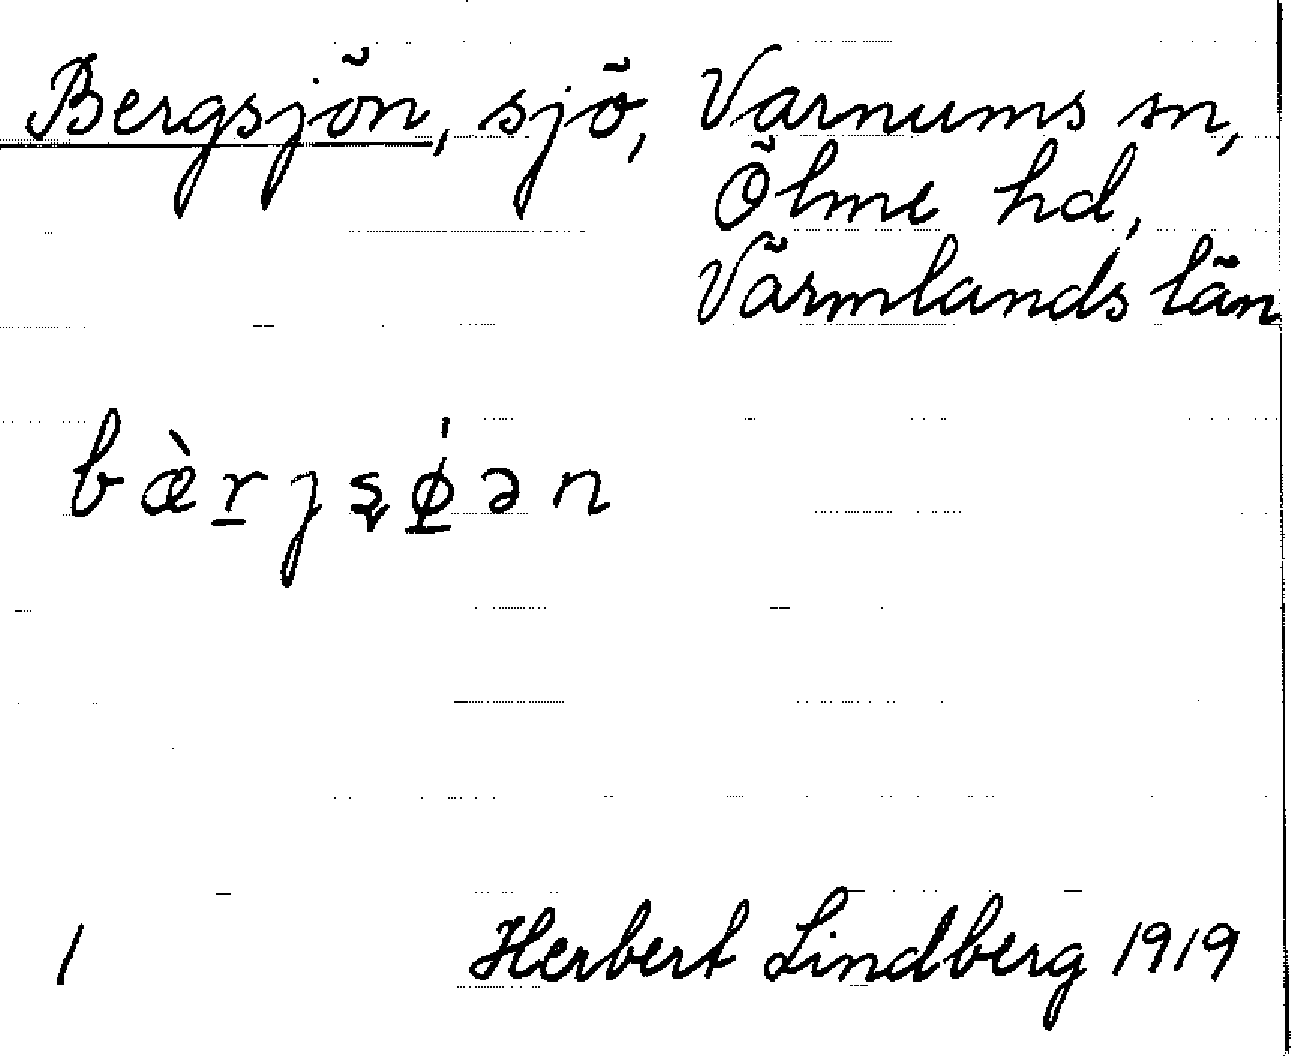 Bergsjön, sjö, Varnums sn,
Ölme hd,
Värmlands län
bæ̀r̲ȷʂǿ̲ən
1 Herbert Lindberg 1919